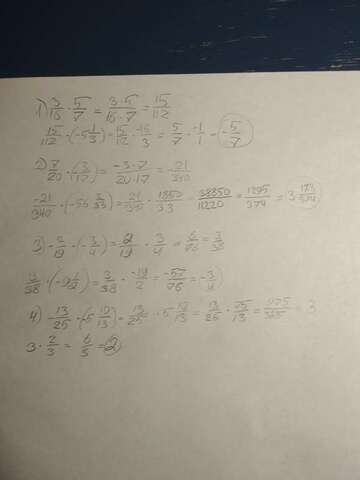 1) 3/16 · 5/7 = 3·5/16·7 = 15/112
15/112 · (-5 1/3) = 15/112 · -16/3 = 5/7 · -1/1 = -5/7
2) 7/20 · (-3/17) = -3·7/20·17 = -21/340
-21/340 · (-56 2/33) = 21/340 · 1850/33 = 38850/11220 = 1295/374 = 3 173/374
3) -2/19 · (-3/4) = 2/19 · 3/4 = 6/76 = 3/38
3/38 · (-9 1/2) = 3/38 · -19/2 = -57/76 = -3/4
4) -13/25 · (-5 10/13) = 13/25 · 5 10/13 = 13/25 · 75/13 = 975/325 = 3
3 · 2/3 = 6/3 = 2